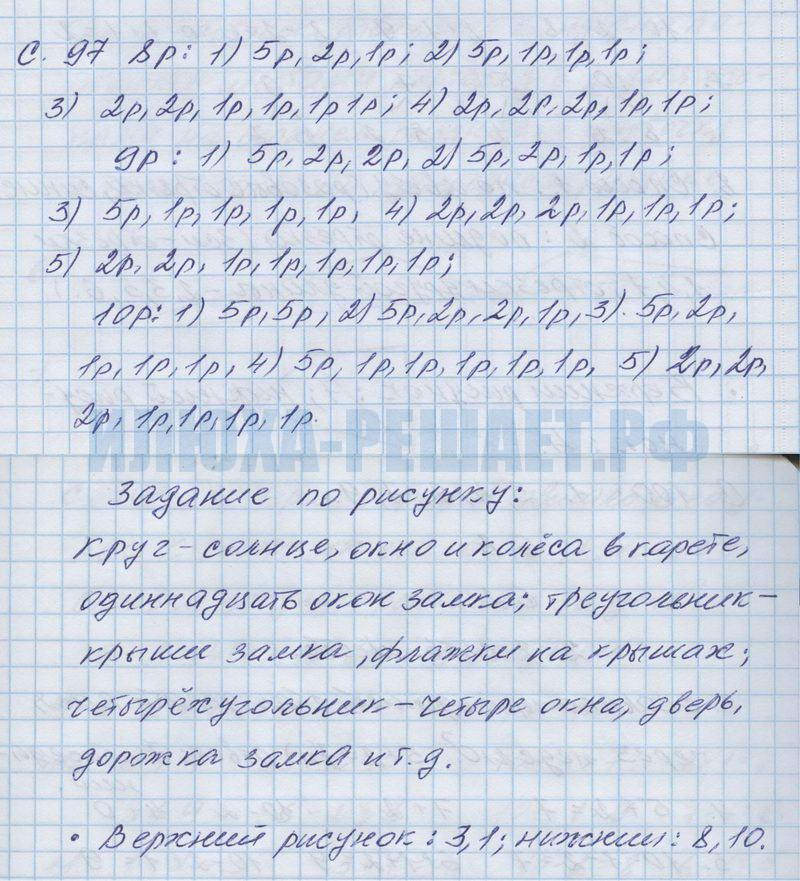 С. 97 8р: 1) 5р, 2р, 1р; 2) 5р, 1р, 1р, 1р;
3) 2р, 2р, 1р, 1р, 1р 1р; 4) 2р, 2р, 2р, 1р, 1р;
9р: 1) 5р, 2р, 2р, 2) 5р, 2р, 1р, 1р;
3) 5р, 1р, 1р, 1р, 1р, 4) 2р, 2р, 2р, 1р, 1р, 1р;
5) 2р, 2р, 1р, 1р, 1р, 1р, 1р;
10р: 1) 5р, 5р, 2) 5р, 2р, 2р, 1р, 3). 5р, 2р,
1р, 1р, 1р, 4) 5р, 1р, 1р, 1р, 1р, 1р, 5) 2р, 2р,
2р, 1р, 1р, 1р, 1р.
ИЛЮХА-РЕШАЕТ.РФ
Задание по рисунку:
круг - солнце, окно и колёса в карете,
одиннадцать окон замка; треугольник -
крыши замка, флажки на крышах;
четырёхугольник - четыре окна, дверь,
дорожка замка и т. д.
• Верхний рисунок: 3, 1; нижний: 8, 10.